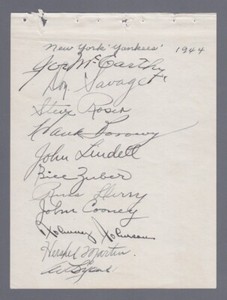 New York 'Yankees' 1944
Joe McCarthy
Don Savage
Steve Roser
Hank Borowy
John Lindell
Bill Zuber
John Cooney
Johnny Johnson
Hershel Martin